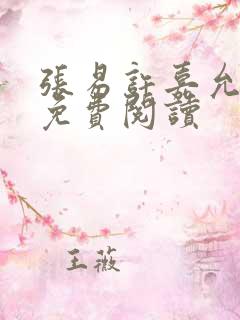 張易許嘉允
免費閱讀
王薇